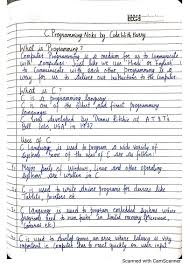 C Programming Notes by CodeWithHarry
What is Programming?
Computer Programming is a medium for us to communicate
with computers. Just like we use 'Hindi' or 'English'
to communicate with each other, Programming is a
way for us to deliver our instructions to the computer
What is C?
C is a programming language
C is one of the oldest and finest programming
languages
C was developed by Dennis Ritchie at AT&T
Bell Labs, USA in 1972
Uses of C
C Language is used to program a wide variety of
systems. Some of the uses of C are as follows:
Major parts of Windows, Linux and other operating
systems are written in C
C is used to write driver programs for devices like
Tablets, printers etc.
C Language is used to program embedded systems where
programs need to run faster in limited memory (Microwave,
Cameras etc.)
C is used to develop games, an area where latency is very
important i.e. Computer has to react quickly on user input
Scanned with CamScanner